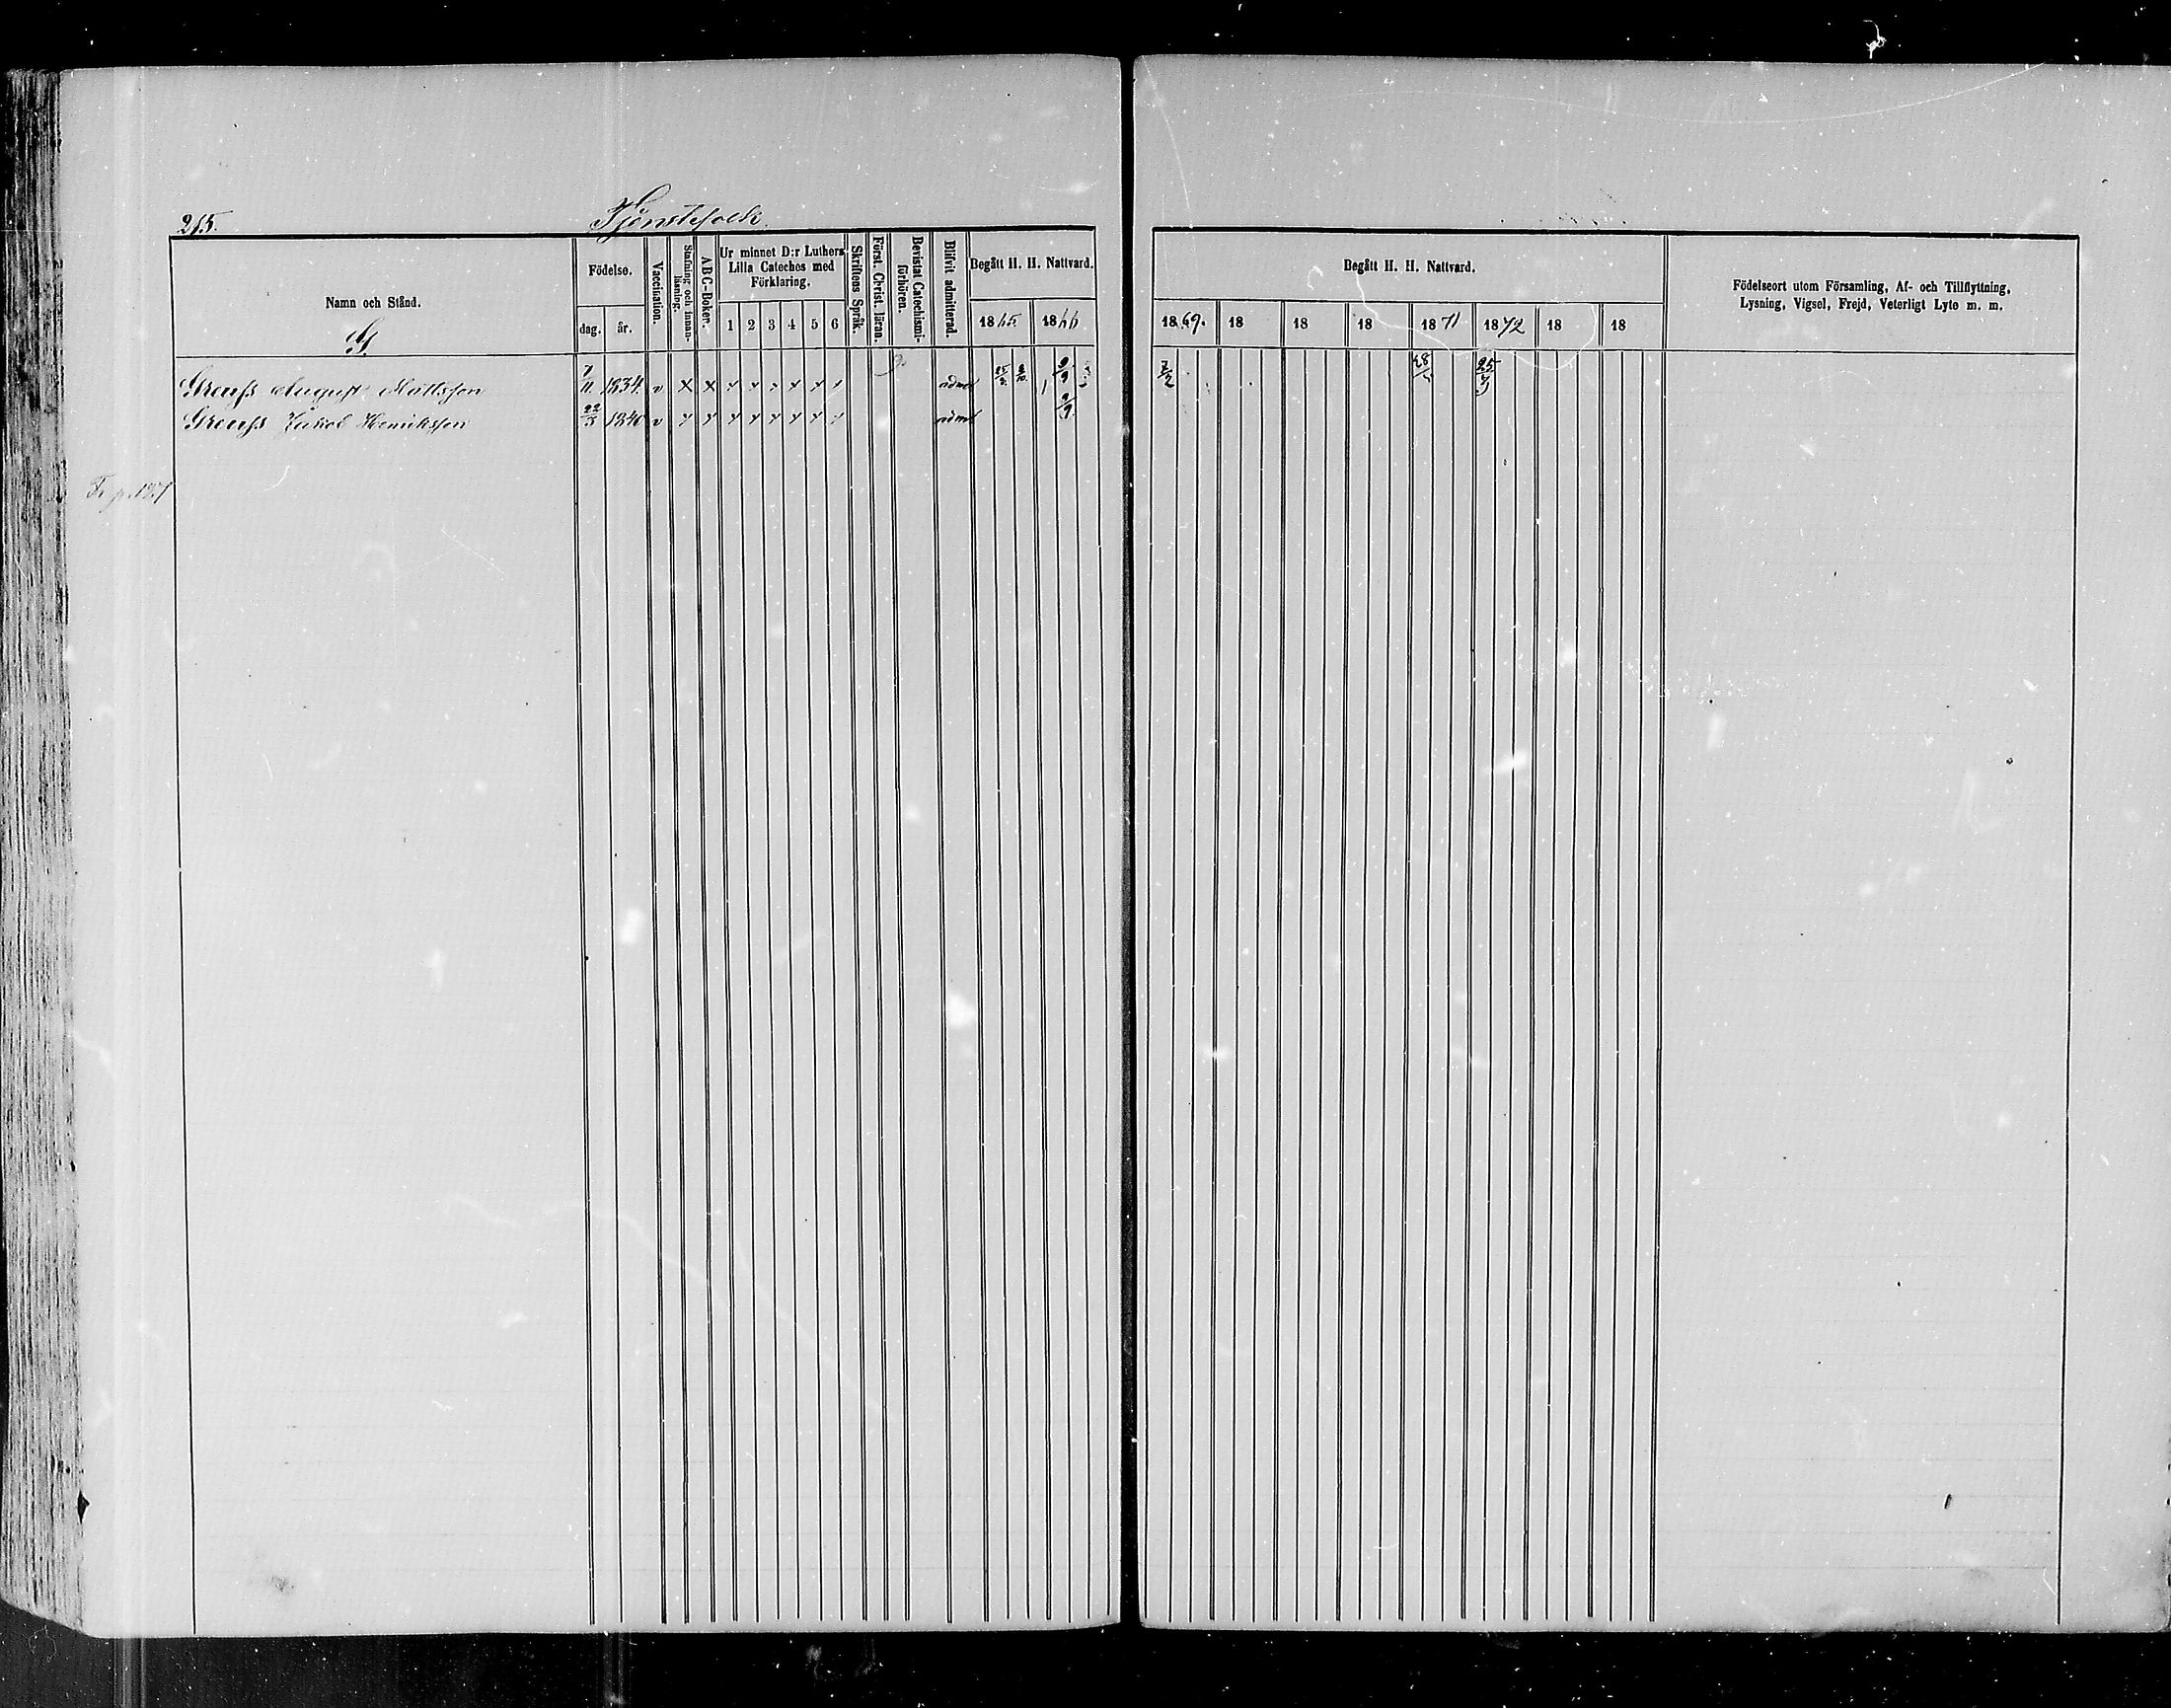 215.
Tjenstefolk
Namn och Stånd.
G.
Födelse.
dag.
år.
Vaccination.
Stafning och innan-
läsning.
ABC-Boken.
Ur minnet D:r Luthers
Lilla Cateches med
Förklaring.
1 2 3 4 5 6
Skriftens Språk.
Först. Christ. läran.
Bevistat Catechismi-
förhören.
Blifvit admitterad.
Begått H. H. Nattvard.
1865. 1866
Begått H. H. Nattvard.
1869. 18 18 18 1871 1872 18 18
Födelseort utom Församling, Af- och Tillflyttning,
Lysning, Vigsel, Frejd, Veterligt Lyte m. m.
Greuss August Mattsson 7/11 1834. v x x x x x x x x admit 9/9 2/2 25/
Greuss Jakob Henriksson 22/3 1840 v x x x x x x x x admit 9/9